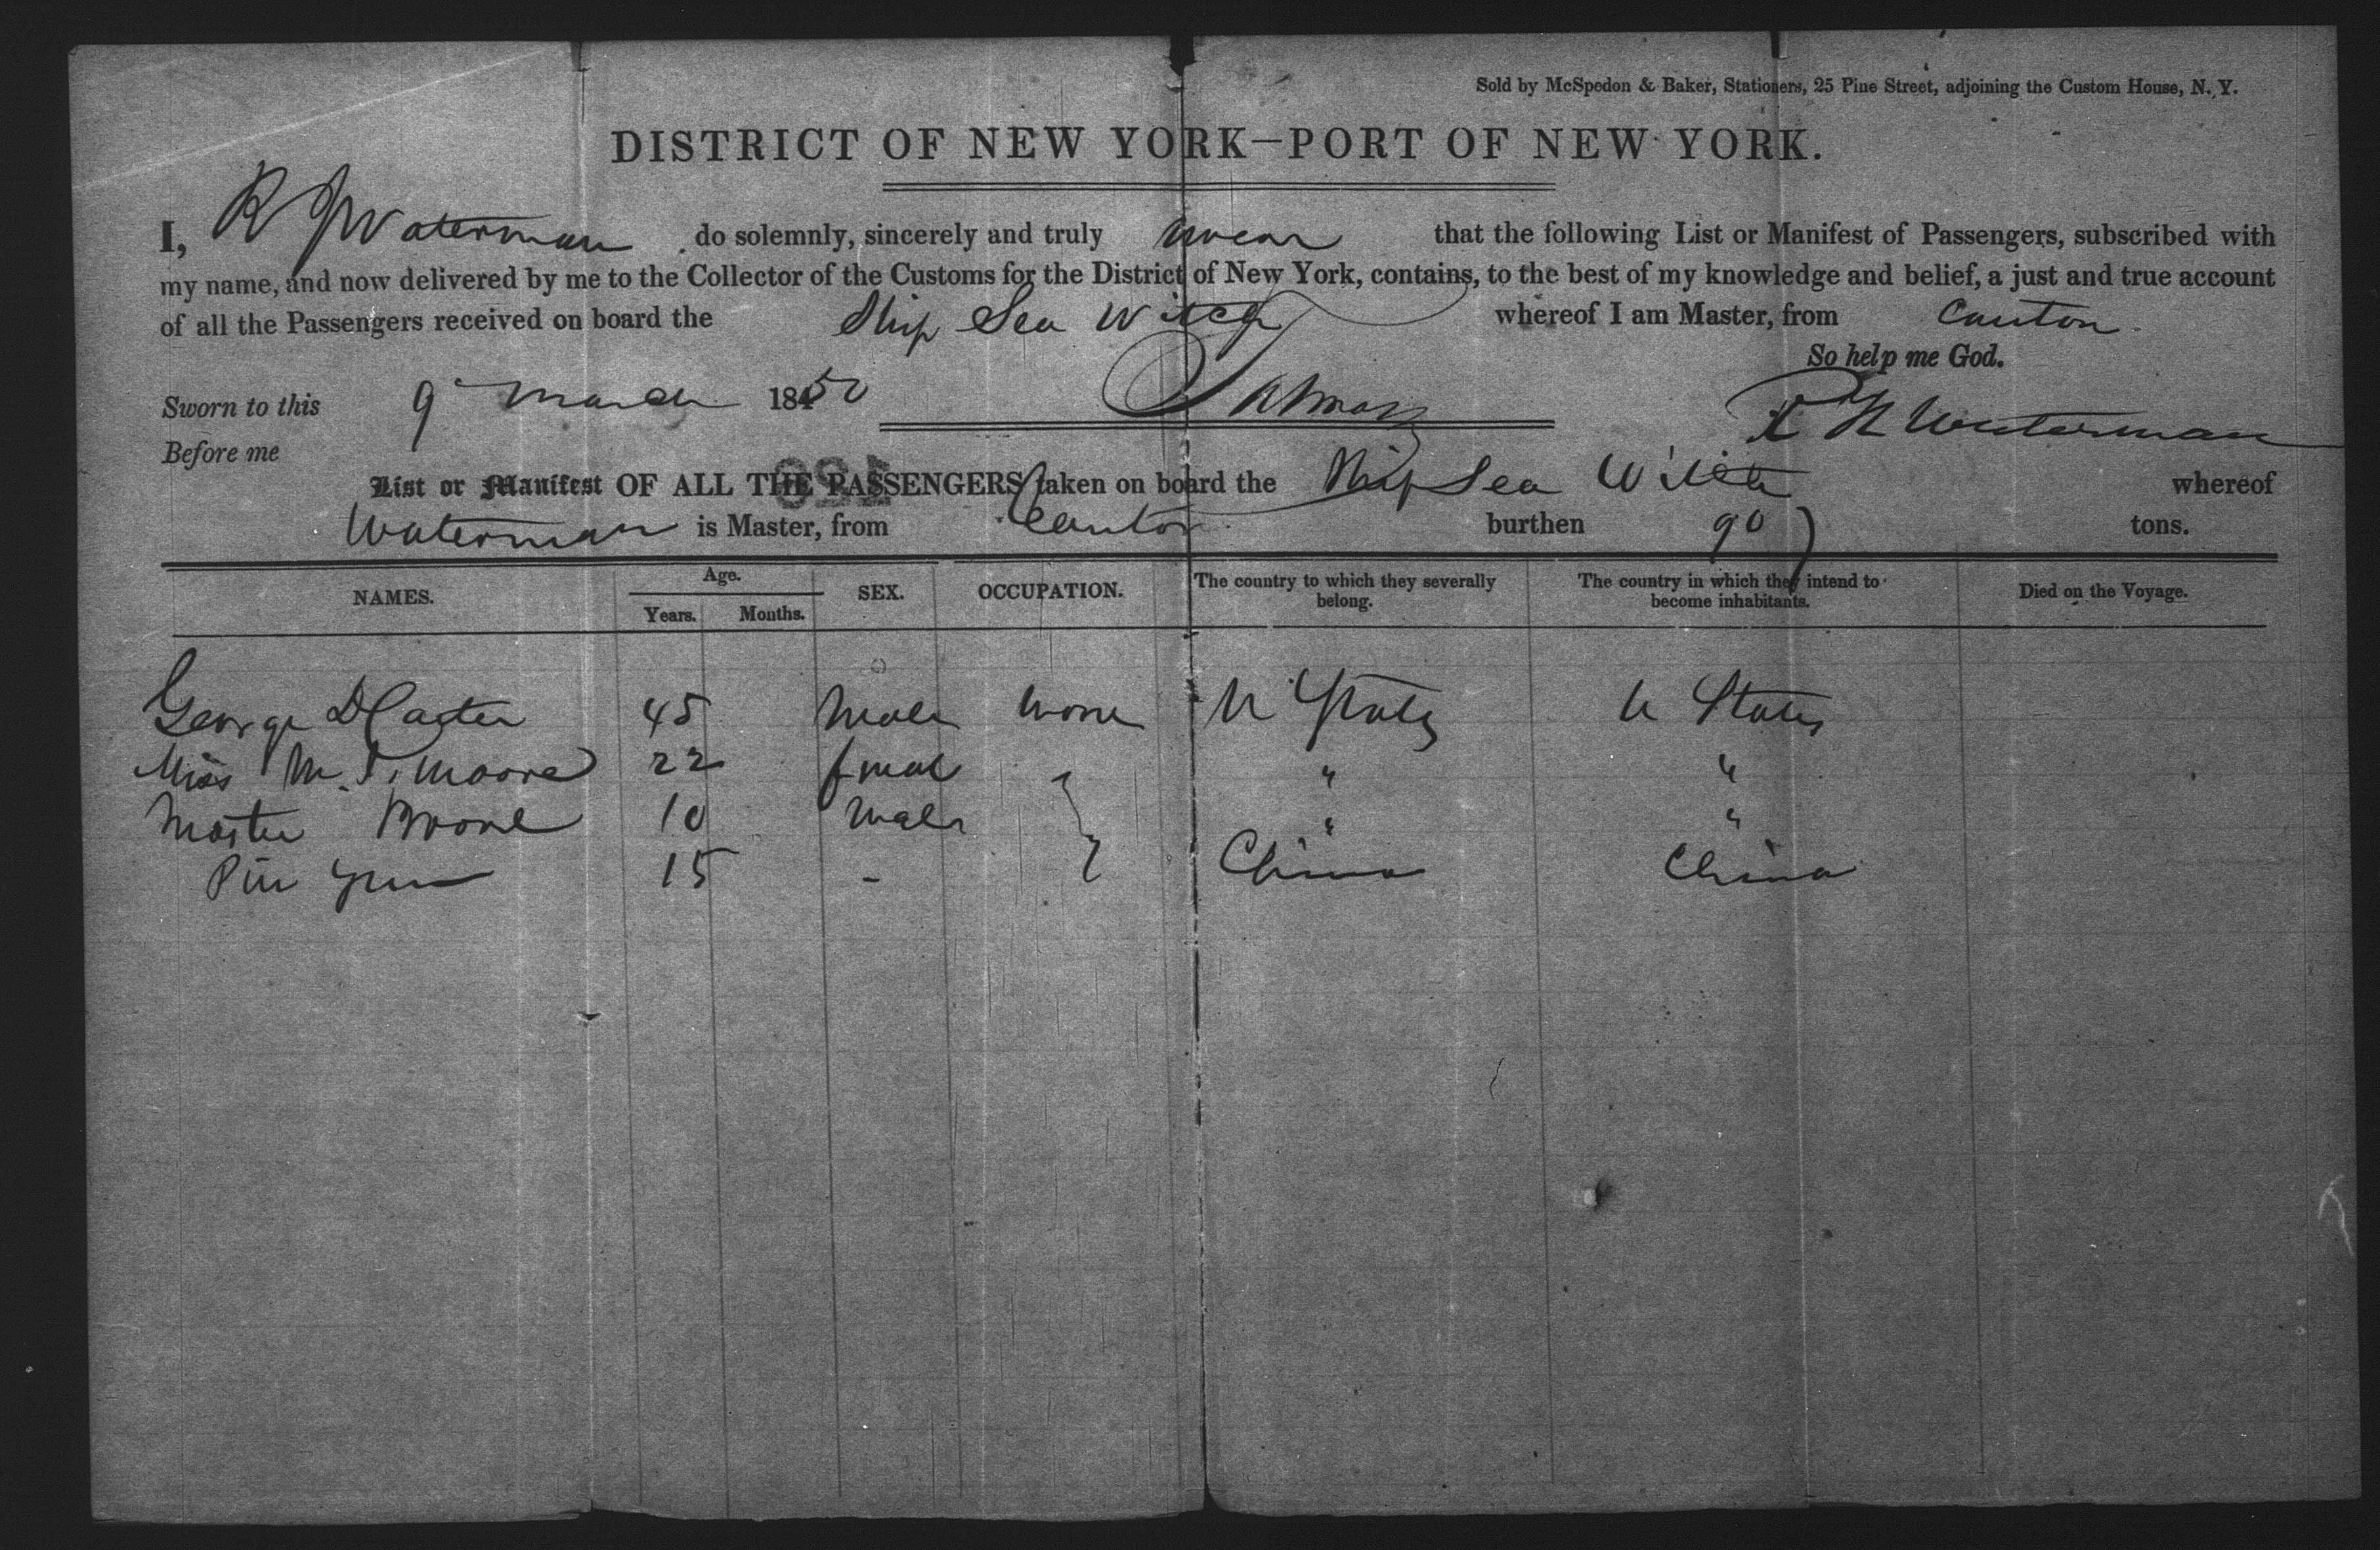 Sold by McSpedon & Baker, Stationers, 25 Pine Street, adjoining the Custom House, N. Y.
DISTRICT OF NEW YORK—PORT OF NEW YORK.
I, R Waterman do solemnly, sincerely and truly swear that the following List or Manifest of Passengers, subscribed with
my name, and now delivered by me to the Collector of the Customs for the District of New York, contains, to the best of my knowledge and belief, a just and true account
of all the Passengers received on board the Ship Sea Witch whereof I am Master, from Canton
So help me God.
Sworn to this 9 March 1850
R H Waterman
Before me
List or Manifest OF ALL THE PASSENGERS taken on board the Ship Sea Witch whereof
Waterman is Master, from Canton burthen 907 tons.
NAMES. Age. Years. Months. SEX. OCCUPATION. The country to which they severally belong. The country in which they intend to become inhabitants. Died on the Voyage.
George D Carter 45 Male none U States U States
Miss M. Moore 22 femal " "
Master 10 Male " "
15 - China China